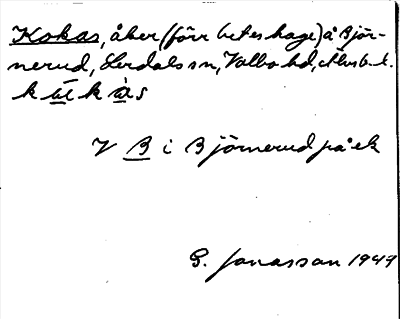 Kokas, åker (förr beteshage) å Björ-
nerud, Herdals sn, Valbo hd,
kùkàs
V B i Björnerud på ek
G. Jonasson 1947